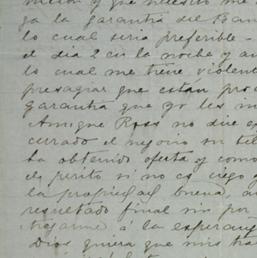 y que necesito me
ga la garantia del Ban
lo cual seria preferible -
el dia 2 en la noche y au
lo cual me tiene violent
presagiar que estan pro
garantia que yo les m
Amigue Ross no dice
curado el negocio
ha obtenido oferta y como
es perito si no es ciego y
la propiedad buena, au
resultado final sin por
á la esperan
Dios quiera que mis ha